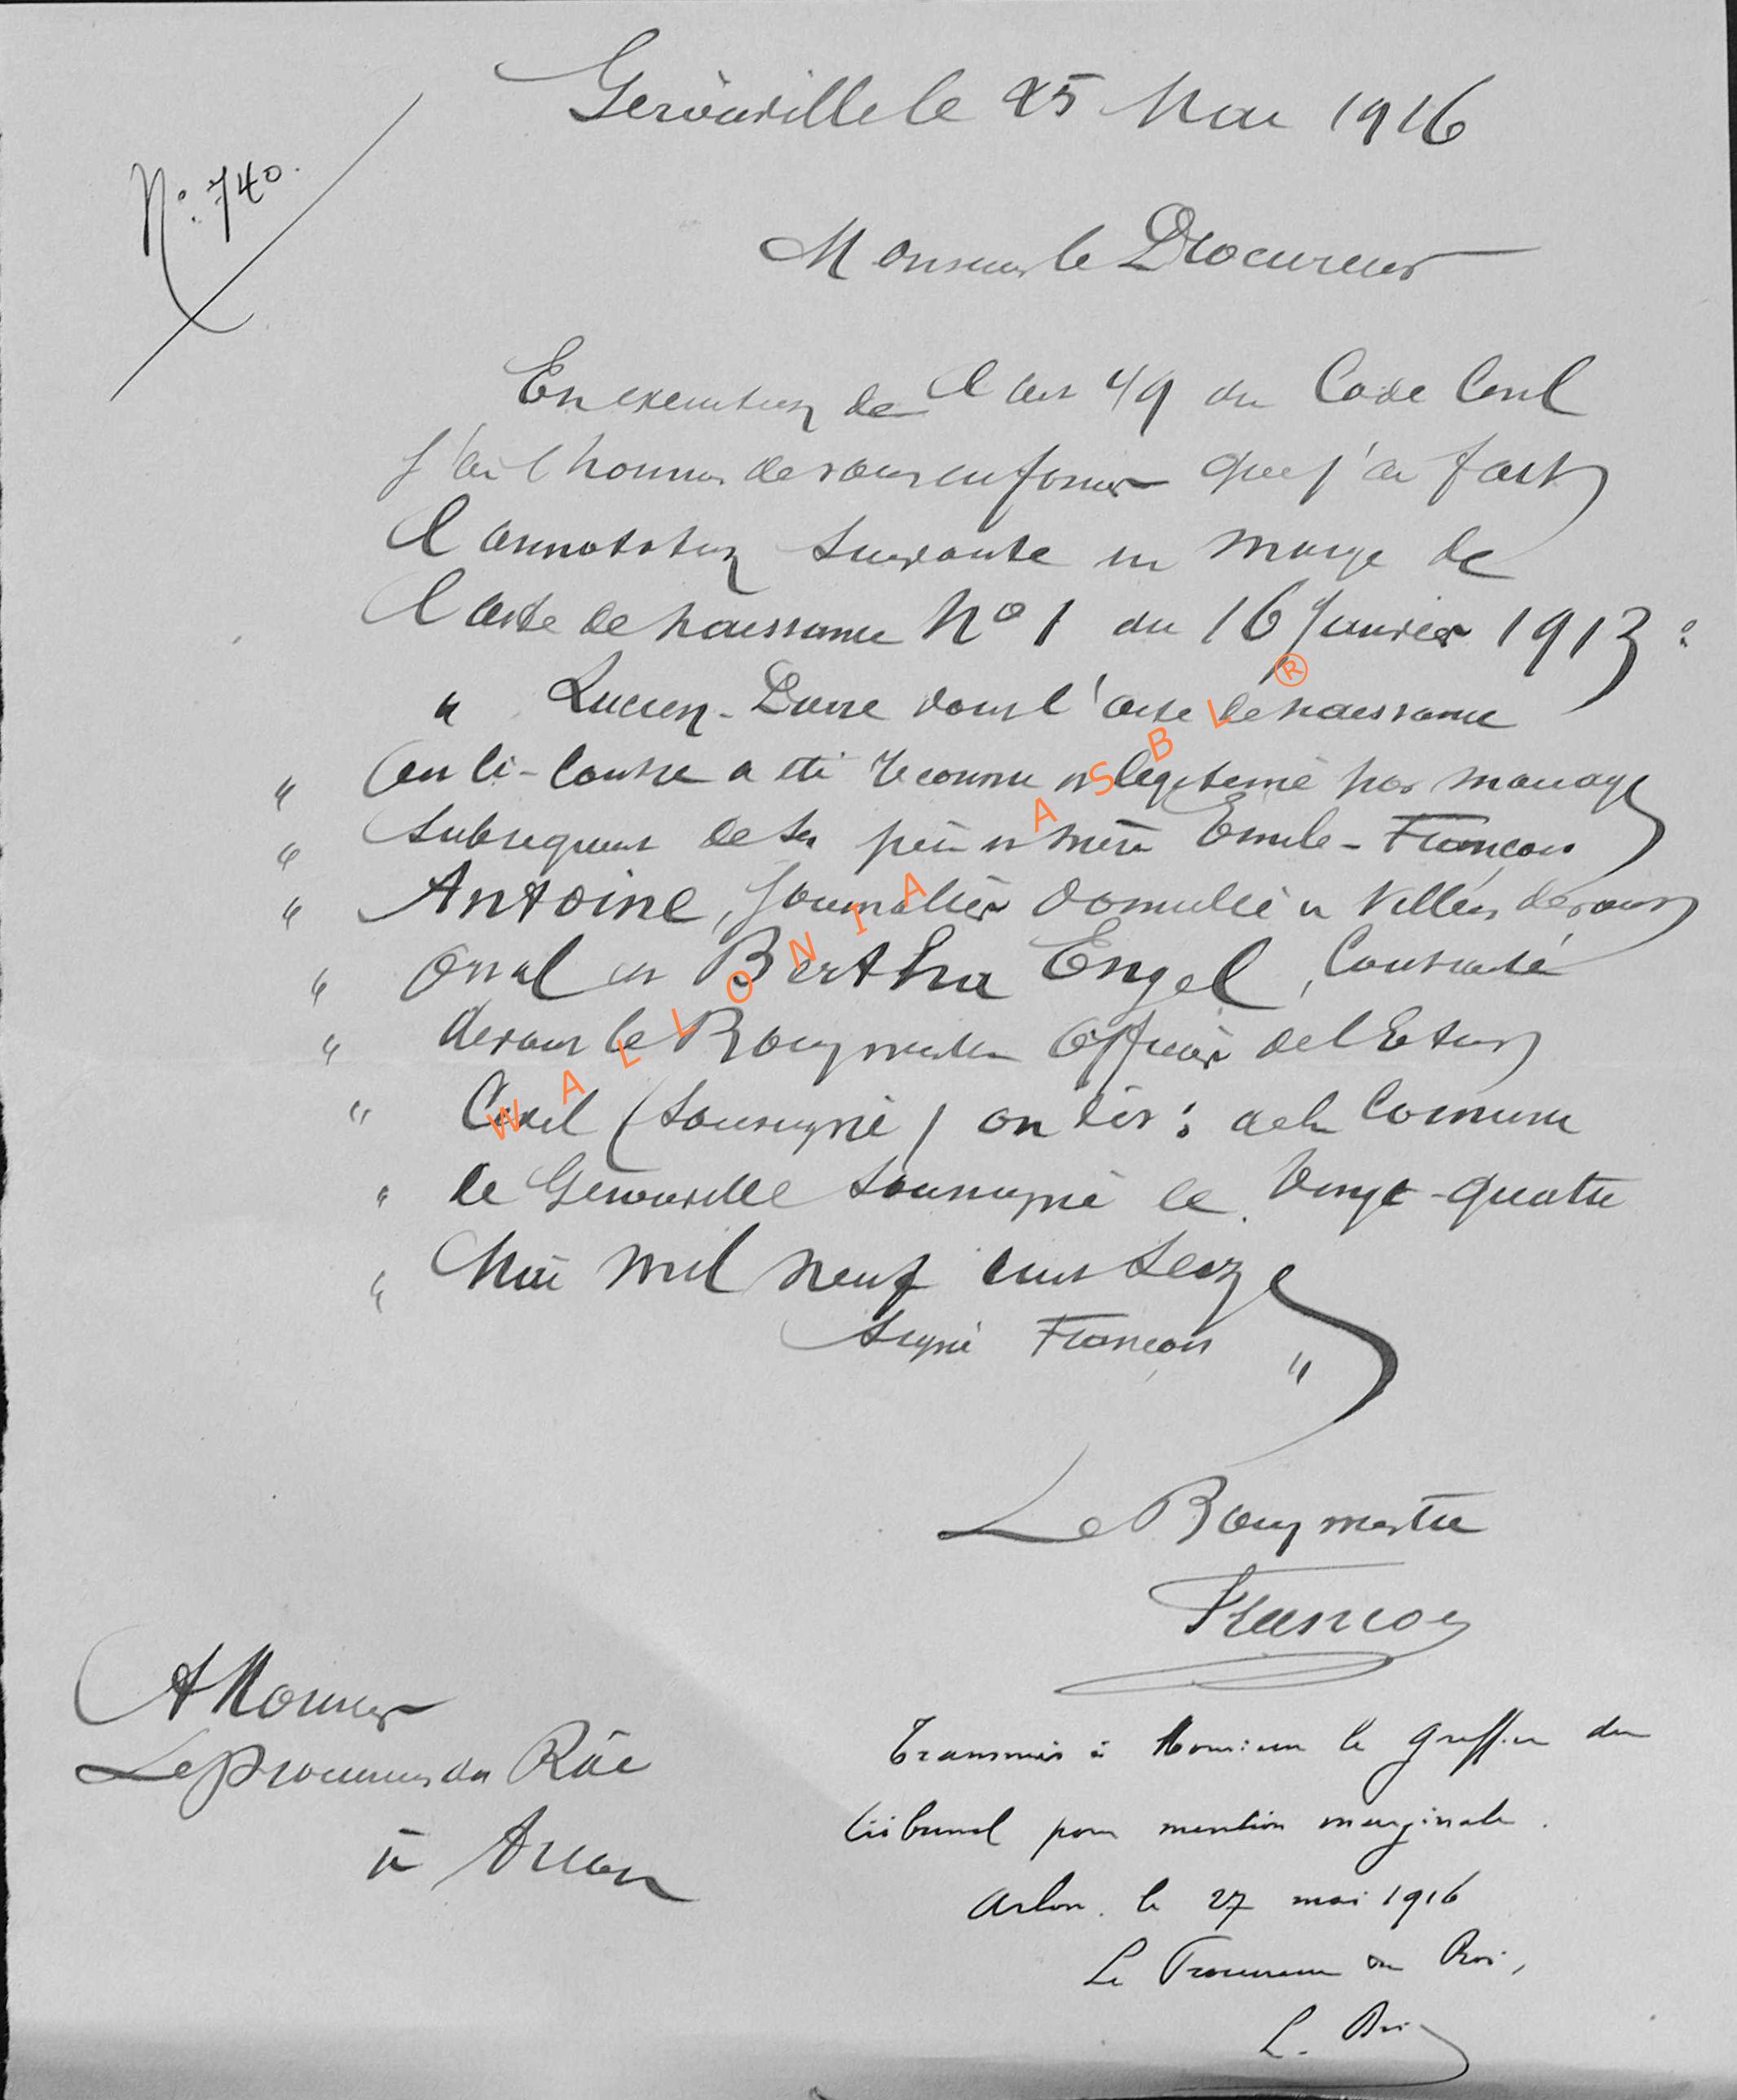 Gérouville le 25 Mai 1916
N°. 740.
Monsieur le Procureur
En execution de l'art 49 du Code Civil
J'ai l'honneur de vous informer que j'ai fait
l'annotation suivante en marge de
l'acte de naissance N° 1 du 16 Janvier 1913 :
" Lucien- dont l'acte de naissance
" ci-contre a été reconnu et légitimé par mariage
" subséquent de ses père et mère Emile-François
" Antoine, Journalier domicilié à Villers devant
" Orval et Bertha Engel, Contracté
" devant le Bourgmestre Officier de l'Etat
" Civil (soussigné) de la Commune
" de Gérouville soussigné le Vingt-quatre
" Mai mil neuf cent seize
Signé François "
Le Bourgmestre
François
A Monsieur
Le Procureur du Roi
à Arlon
Transmis à Monsieur le greffier du
tribunal pour mention marginale.
Arlon. le 27 mai 1916
Le Procureur du Roi,
WALLONIA ASBL ®